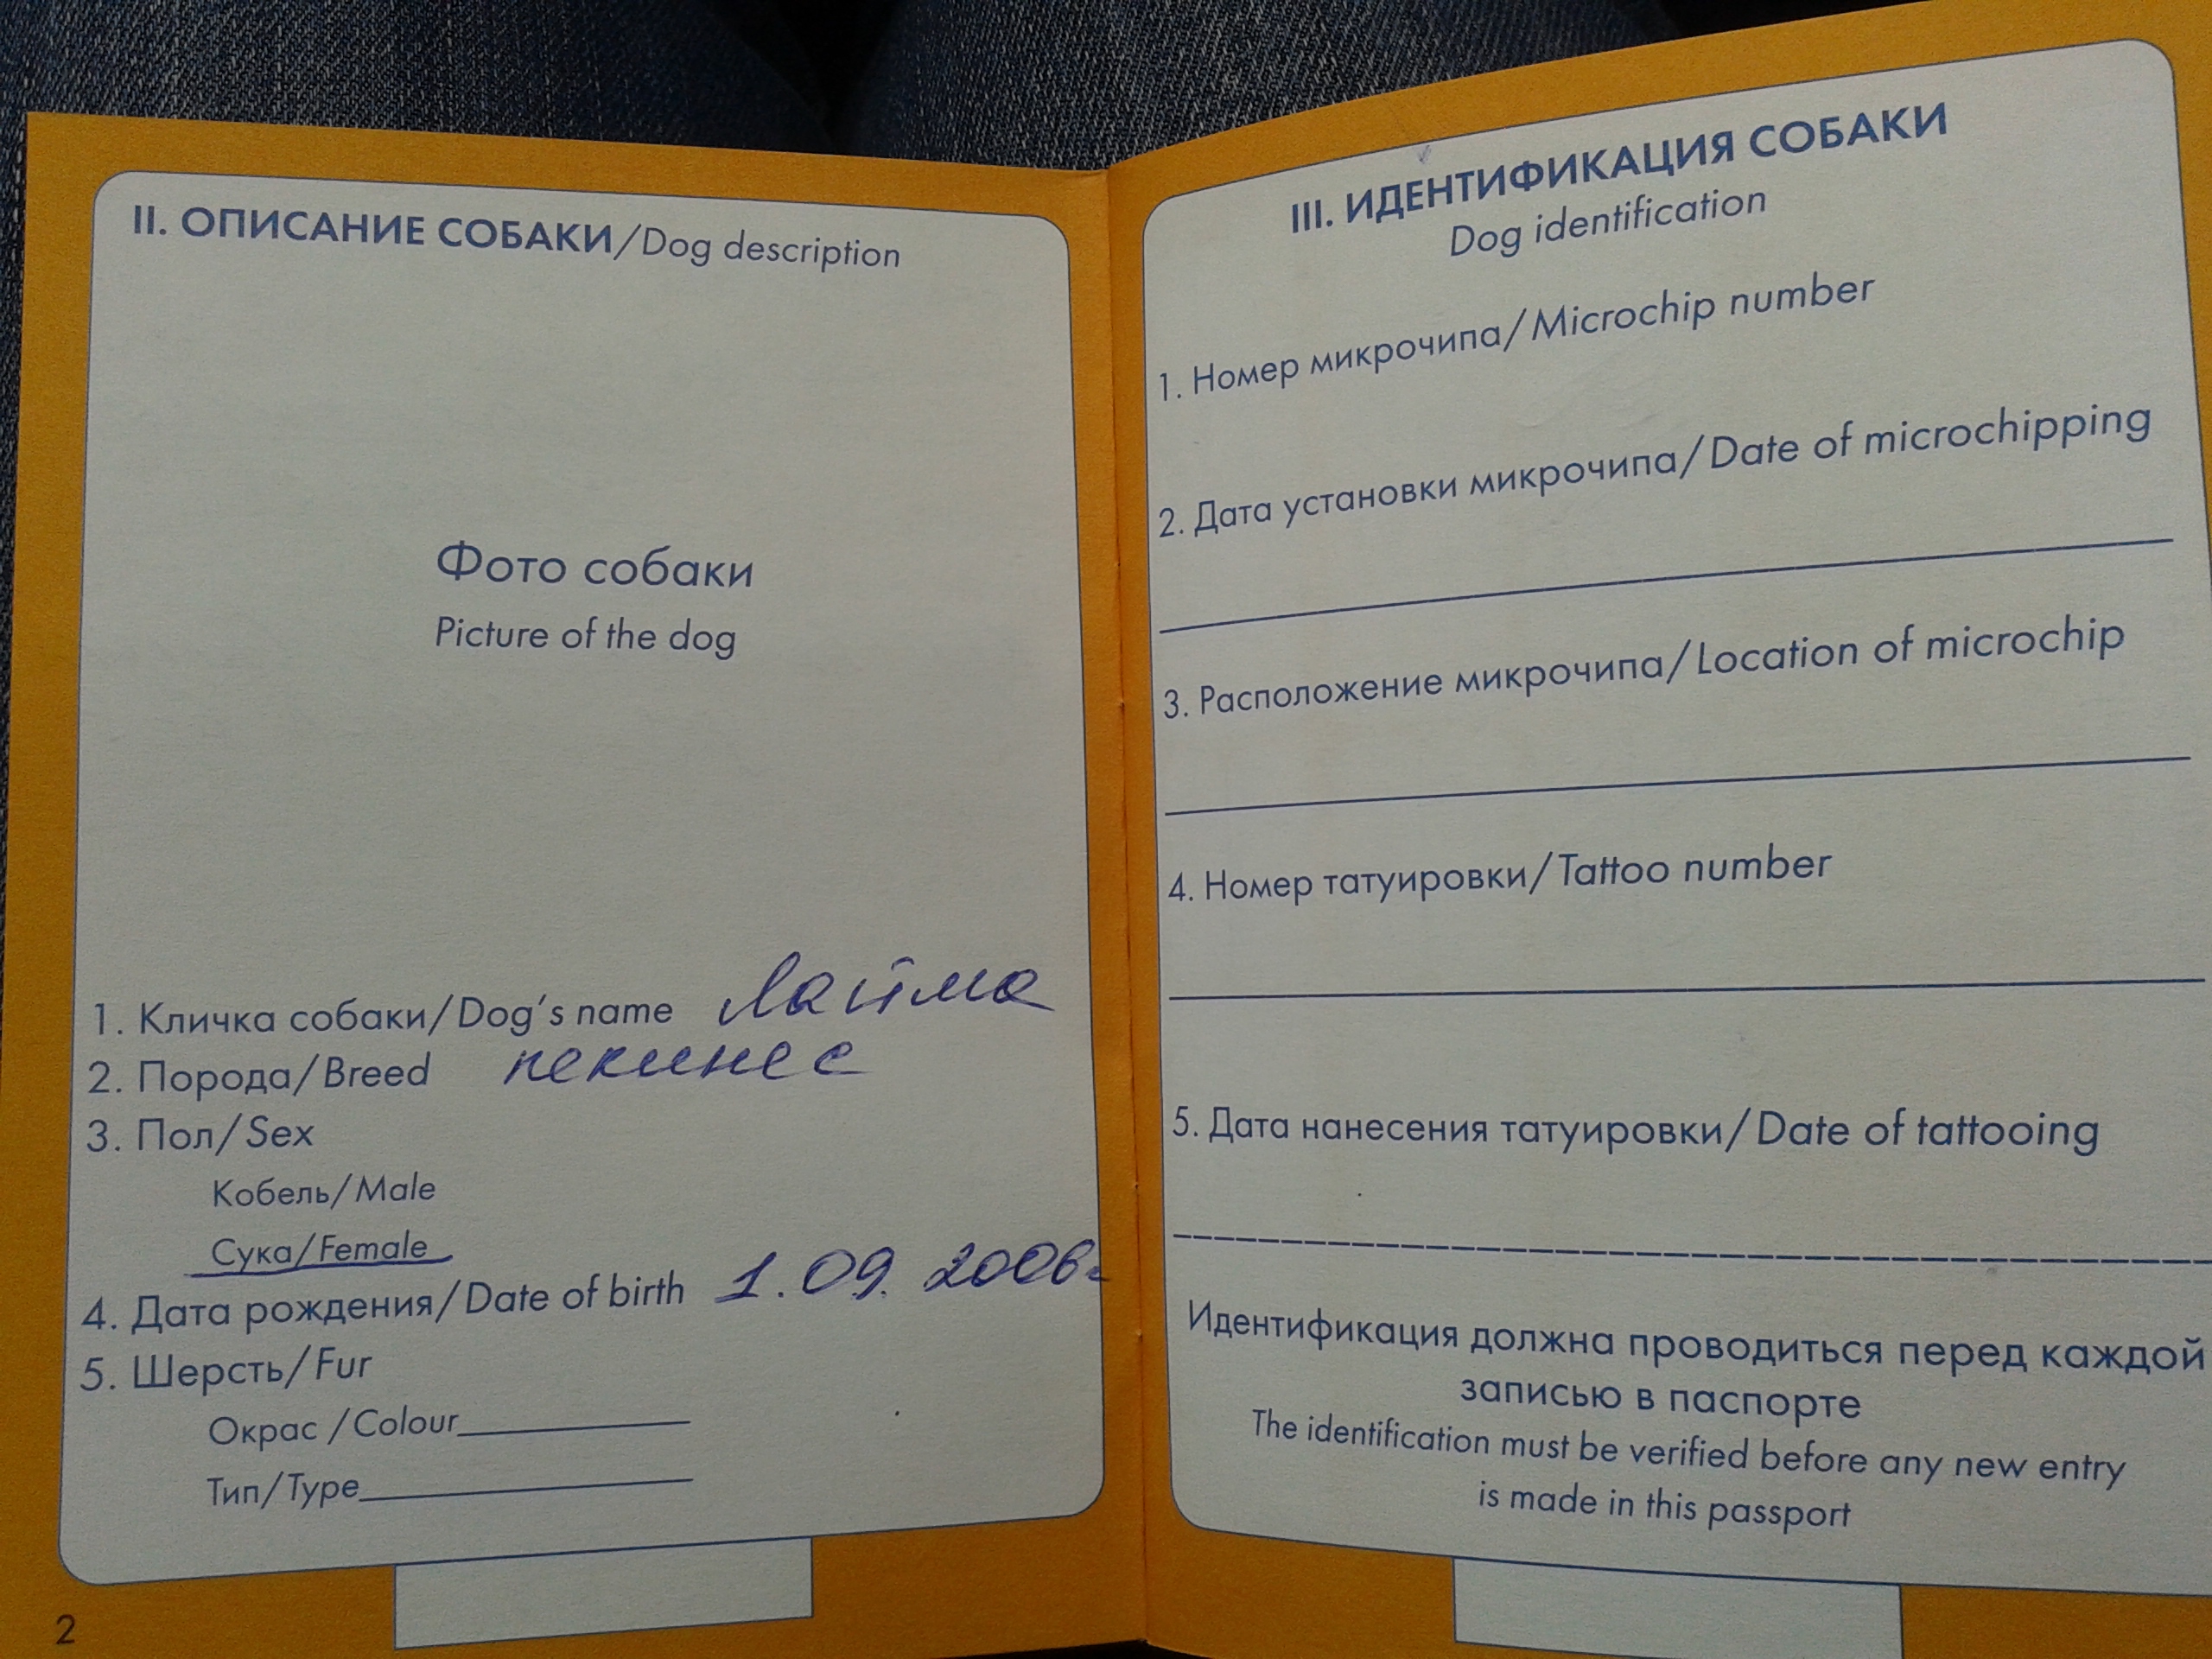 II. ОПИСАНИЕ СОБАКИ/Dog description
Фото собаки
Picture of the dog
1. Кличка собаки/Dog's name Лайма
2. Порода/Breed пекинес
3. Пол/Sex
Кобель/Male
Сука/Female
4. Дата рождения/Date of birth 1.09.2006г
5. Шерсть/Fur
Окрас /Colour
Тип/Type
2
III. ИДЕНТИФИКАЦИЯ СОБАКИ
Dog identification
1. Номер микрочипа/Microchip number
2. Дата установки микрочипа/Date of microchipping
3. Расположение микрочипа/Location of microchip
4. Номер татуировки/Tattoo number
5. Дата нанесения татуировки/Date of tattooing
Идентификация должна проводиться перед каждой
записью в паспорте
The identification must be verified before any new entry
is made in this passport